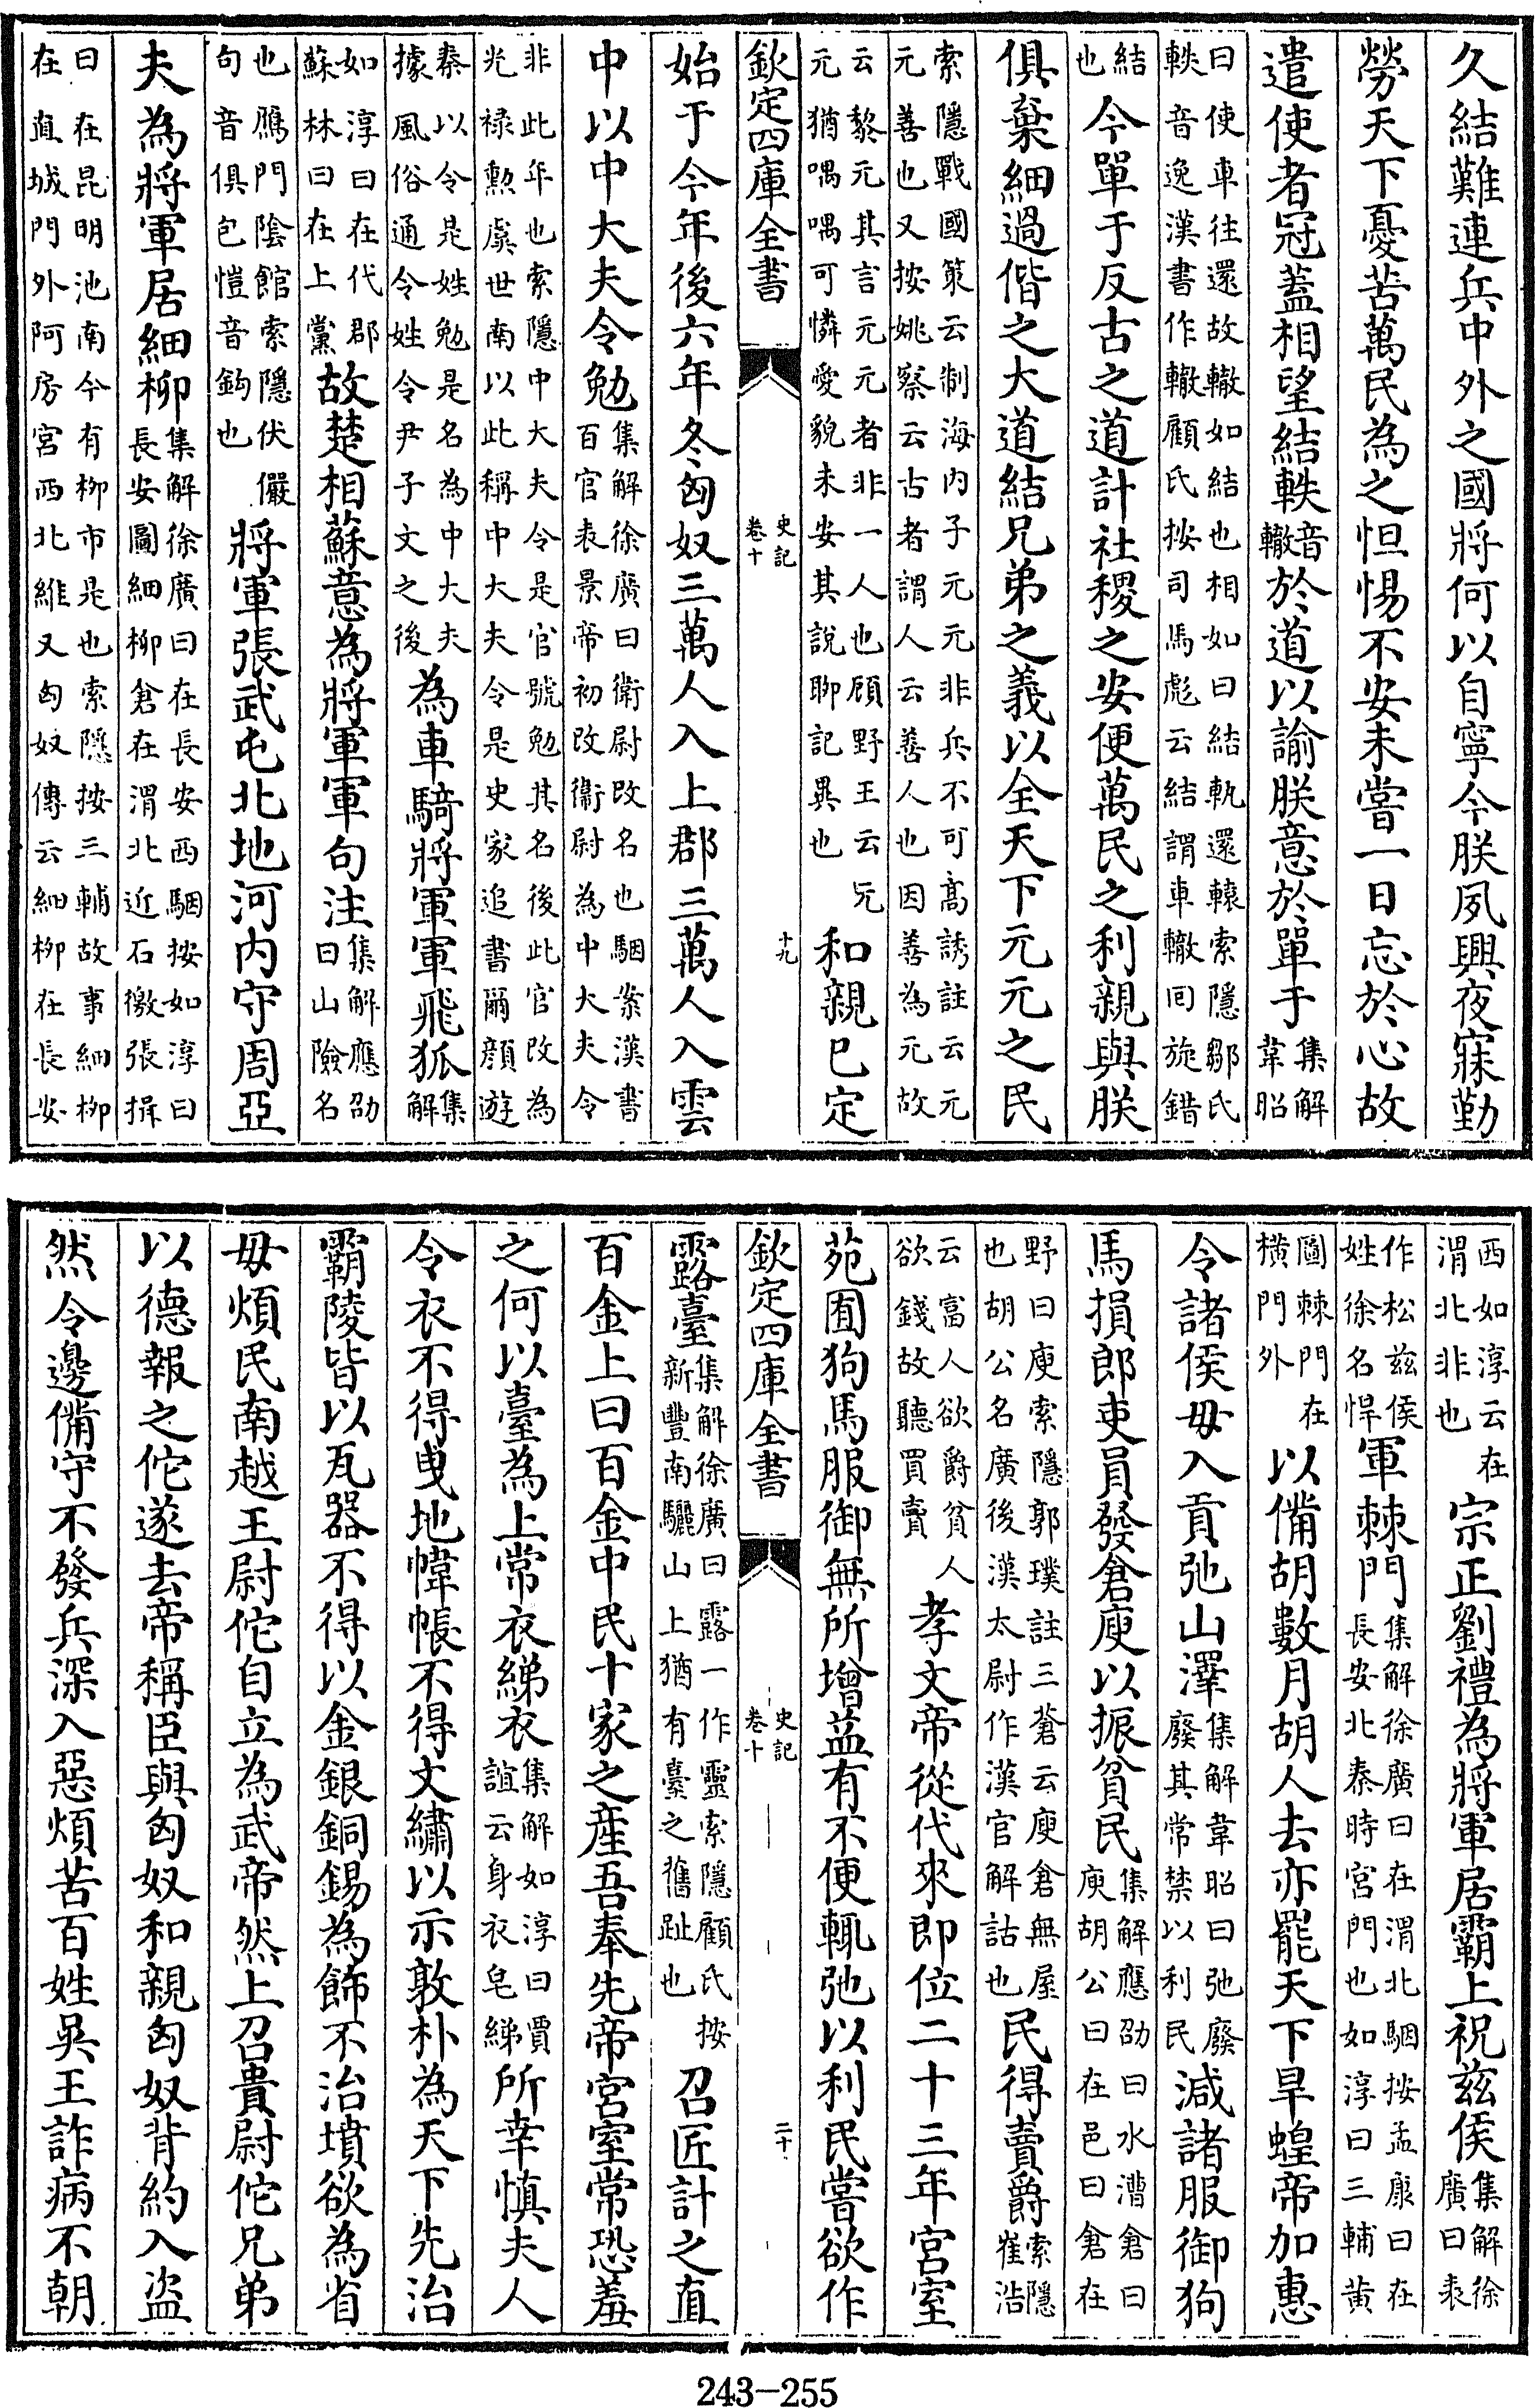 久結難連兵中外之國將何以自寧今朕夙興夜寐勤
勞天下憂苦萬民為之怛惕不安未嘗一日忘於心故
遣使者冠蓋相望結軼音轍於道以諭朕意於單于集解韋昭
曰使車往還故轍如結也相如曰結軌還轅索隱鄒氏
軼音逸漢書作轍顧氏按司馬彪云結謂車轍回旋錯
結也今單于反古之道計社稷之安便萬民之利親與朕
俱棄細過偕之大道結兄弟之義以全天下元元之民
索隱戰國策云制海内子元元非兵不可髙誘註云元
元善也又按姚察云古者謂人云善人也因善為元故
云黎元其言元元者非一人也顧野王云元
元猶喁喁可憐愛貌未安其說聊記異也和親已定
欽定四庫全書
史記
卷十
十九
始于今年後六年冬匈奴三萬人入上郡三萬人入雲
中以中大夫令勉集解徐廣曰衛尉改名也駰案漢書
百官表景帝初改衛尉為中大夫令
非此年也索隱中大夫令是官號勉其名後此官改為
光禄勲虞世南以此稱中大夫令是史家追書爾顔遊
秦以令是姓勉是名為中大夫
據風俗通令姓令尹子文之後為車騎將軍軍飛狐集解
如淳曰在代郡
蘇林曰在上黨故楚相蘇意為將軍軍句注集解應劭
曰山險名
也鴈門隂館索隱伏儼
句音俱包愷音鉤也將軍張武屯北地河内守周亞
夫為將軍居細柳集解徐廣曰在長安西駰按如淳曰
長安圖細柳倉在渭北近石徼張揖
曰在昆明池南今有柳市是也索隱按三輔故事細柳
在直城門外阿房宮西北維又匈奴傳云細柳在長安
西如淳云在
渭北非也宗正劉禮為將軍居霸上祝兹侯集解徐
廣曰表
作松兹侯
姓徐名悍軍棘門集解徐廣曰在渭北駰按孟康曰在
長安北秦時宮門也如淳曰三輔黄
圖棘門在
横門外以備胡數月胡人去亦罷天下旱蝗帝加惠
令諸侯毋入貢弛山澤集解韋昭曰弛廢
廢其常禁以利民減諸服御狗
馬損郎吏員發倉庾以振貧民集解應劭曰水漕倉曰
庾胡公曰在邑曰倉在
野曰庾索隱郭璞註三蒼云庾倉無屋
也胡公名廣後漢太尉作漢官解詁也民得賣爵索隱
崔浩
云富人欲爵貧人
欲錢故聽買賣孝文帝從代來即位二十三年宮室
苑囿狗馬服御無所增益有不便輒弛以利民嘗欲作
欽定四庫全書
史記
卷十
二十
露臺集解徐廣曰露一作靈索隱顧氏按
新豐南驪山上猶有臺之舊趾也召匠計之直
百金上曰百金中民十家之産吾奉先帝宮室常恐羞
之何以臺為上常衣綈衣集解如淳曰賈
誼云身衣皂綈所幸慎夫人
令衣不得曵地幃帳不得文繡以示敦朴為天下先治
霸陵皆以瓦器不得以金銀銅錫為飾不治墳欲為省
毋煩民南越王尉佗自立為武帝然上召貴尉佗兄弟
以德報之佗遂去帝稱臣與匈奴和親匈奴背約入盗
然令邊備守不發兵深入惡煩苦百姓吳王詐病不朝
243-255